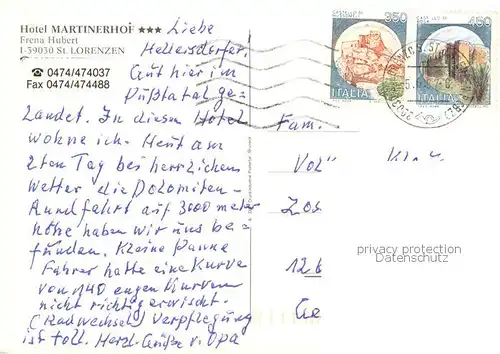 Hotel MARTINERHOF ★★★
Frena Hubert
I-39030 St. LORENZEN
☎ 0474/474037
Fax 0474/474488
Liebe
Hellersdorfer.
Gut hier im
Pußtatal ge-
landet. In diesem Hotel
wohne ich. Heut am
2ten Tag bei herrlichem
Wetter die Dolomiten-
Rundfahrt auf 3000 meter
höhe haben wir uns be-
funden. Kleine Panne
Fahrer hatte eine Kurve
von 140 engen Kurven
nicht richtig erwischt.
(Radwechsel) Verpflegung
ist toll. Herzl. Grüße v. Opa
950
ITALIA
450
ITALIA
Fam.
Vol
12
privacy protection
Datenschutz